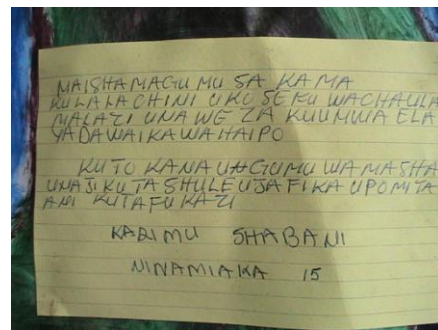 MAISHAMAGUMU SA KAMA
KULALACHINI UKO SEKU WACHAULA
MALAZI UNAWEZA KUUMWA ELA
YADAWAIKAWAHAIPO
KUTO KANA UNGUMU WAMASHA
UNAJIKUTA SHULE UJAFIKA UPO MITA
ANI KUTAFUKAZI
KARIMU SHABANI
NINAMIAKA 15